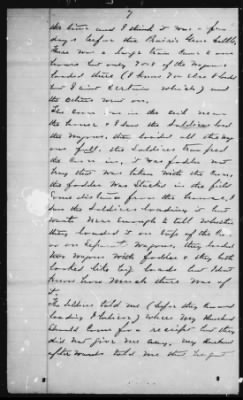 7
the time and I think it was a few
days before the Prairie Grove battle,
There was a large train came to our
house but only 7 or 8 of the wagons
loaded there (I know 7 or else 8 loaded
but I aint certain which) and
the others went on.
The corn was in the crib near
the house & I saw the Soldiers load
the wagons, they loaded all they
one full. the Soldiers
the corn in, it was fodder not
hay that was taken with the corn,
the fodder was stacked in the field
some distance from the house, I
saw the Soldiers loading it but
wasnt near enough to tell whether
they loaded it on top of the corn
or on different wagons, they loaded
two wagons with fodder & they both
looked like big loads but I dont
know how much there was of
it.
The soldiers told me (before they commenced
loading I believe) where my Husband
should come for a receipt but they
did not give me any, my husband
afterwards told me that he got